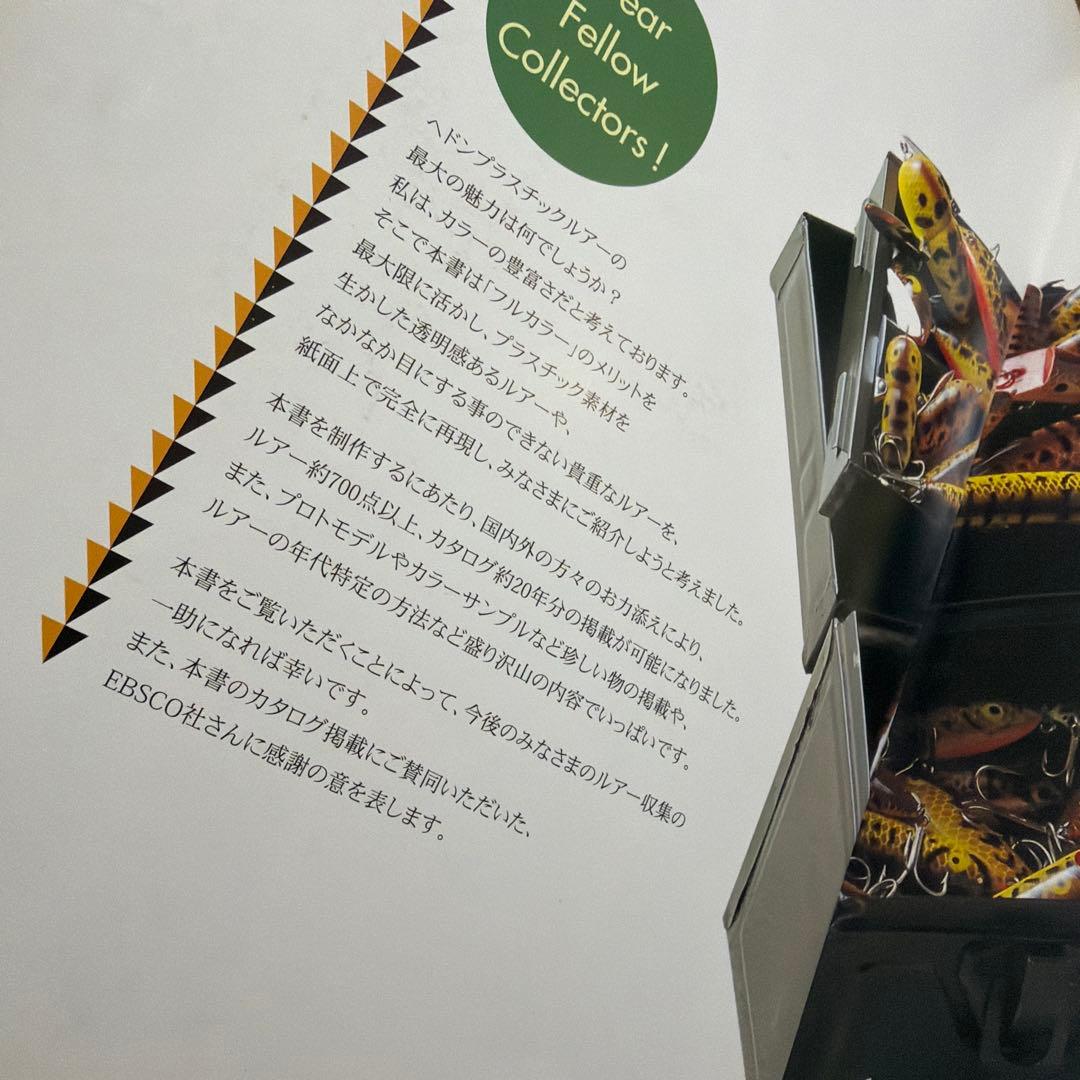 ear
Fellow
Collectors !
ヘドンプラスチックルアーの
最大の魅力は何でしょうか？
私は、カラーの豊富さだと考えております。
そこで本書は「フルカラー」のメリットを
最大限に活かし、プラスチック素材を
生かした透明感あるルアーや、
なかなか目にする事のできない貴重なルアーを、
紙面上で完全に再現し、みなさまにご紹介しようと考えました。
本書を制作するにあたり、国内外の方々のお力添えにより、
ルアー約700点以上、カタログ約20年分の掲載が可能になりました。
また、プロトモデルやカラーサンプルなど珍しい物の掲載や、
ルアーの年代特定の方法など盛り沢山の内容でいっぱいです。
本書をご覧いただくことによって、今後のみなさまのルアー収集の
一助になれば幸いです。
また、本書のカタログ掲載にご賛同いただいた、
EBSCO社さんに感謝の意を表します。